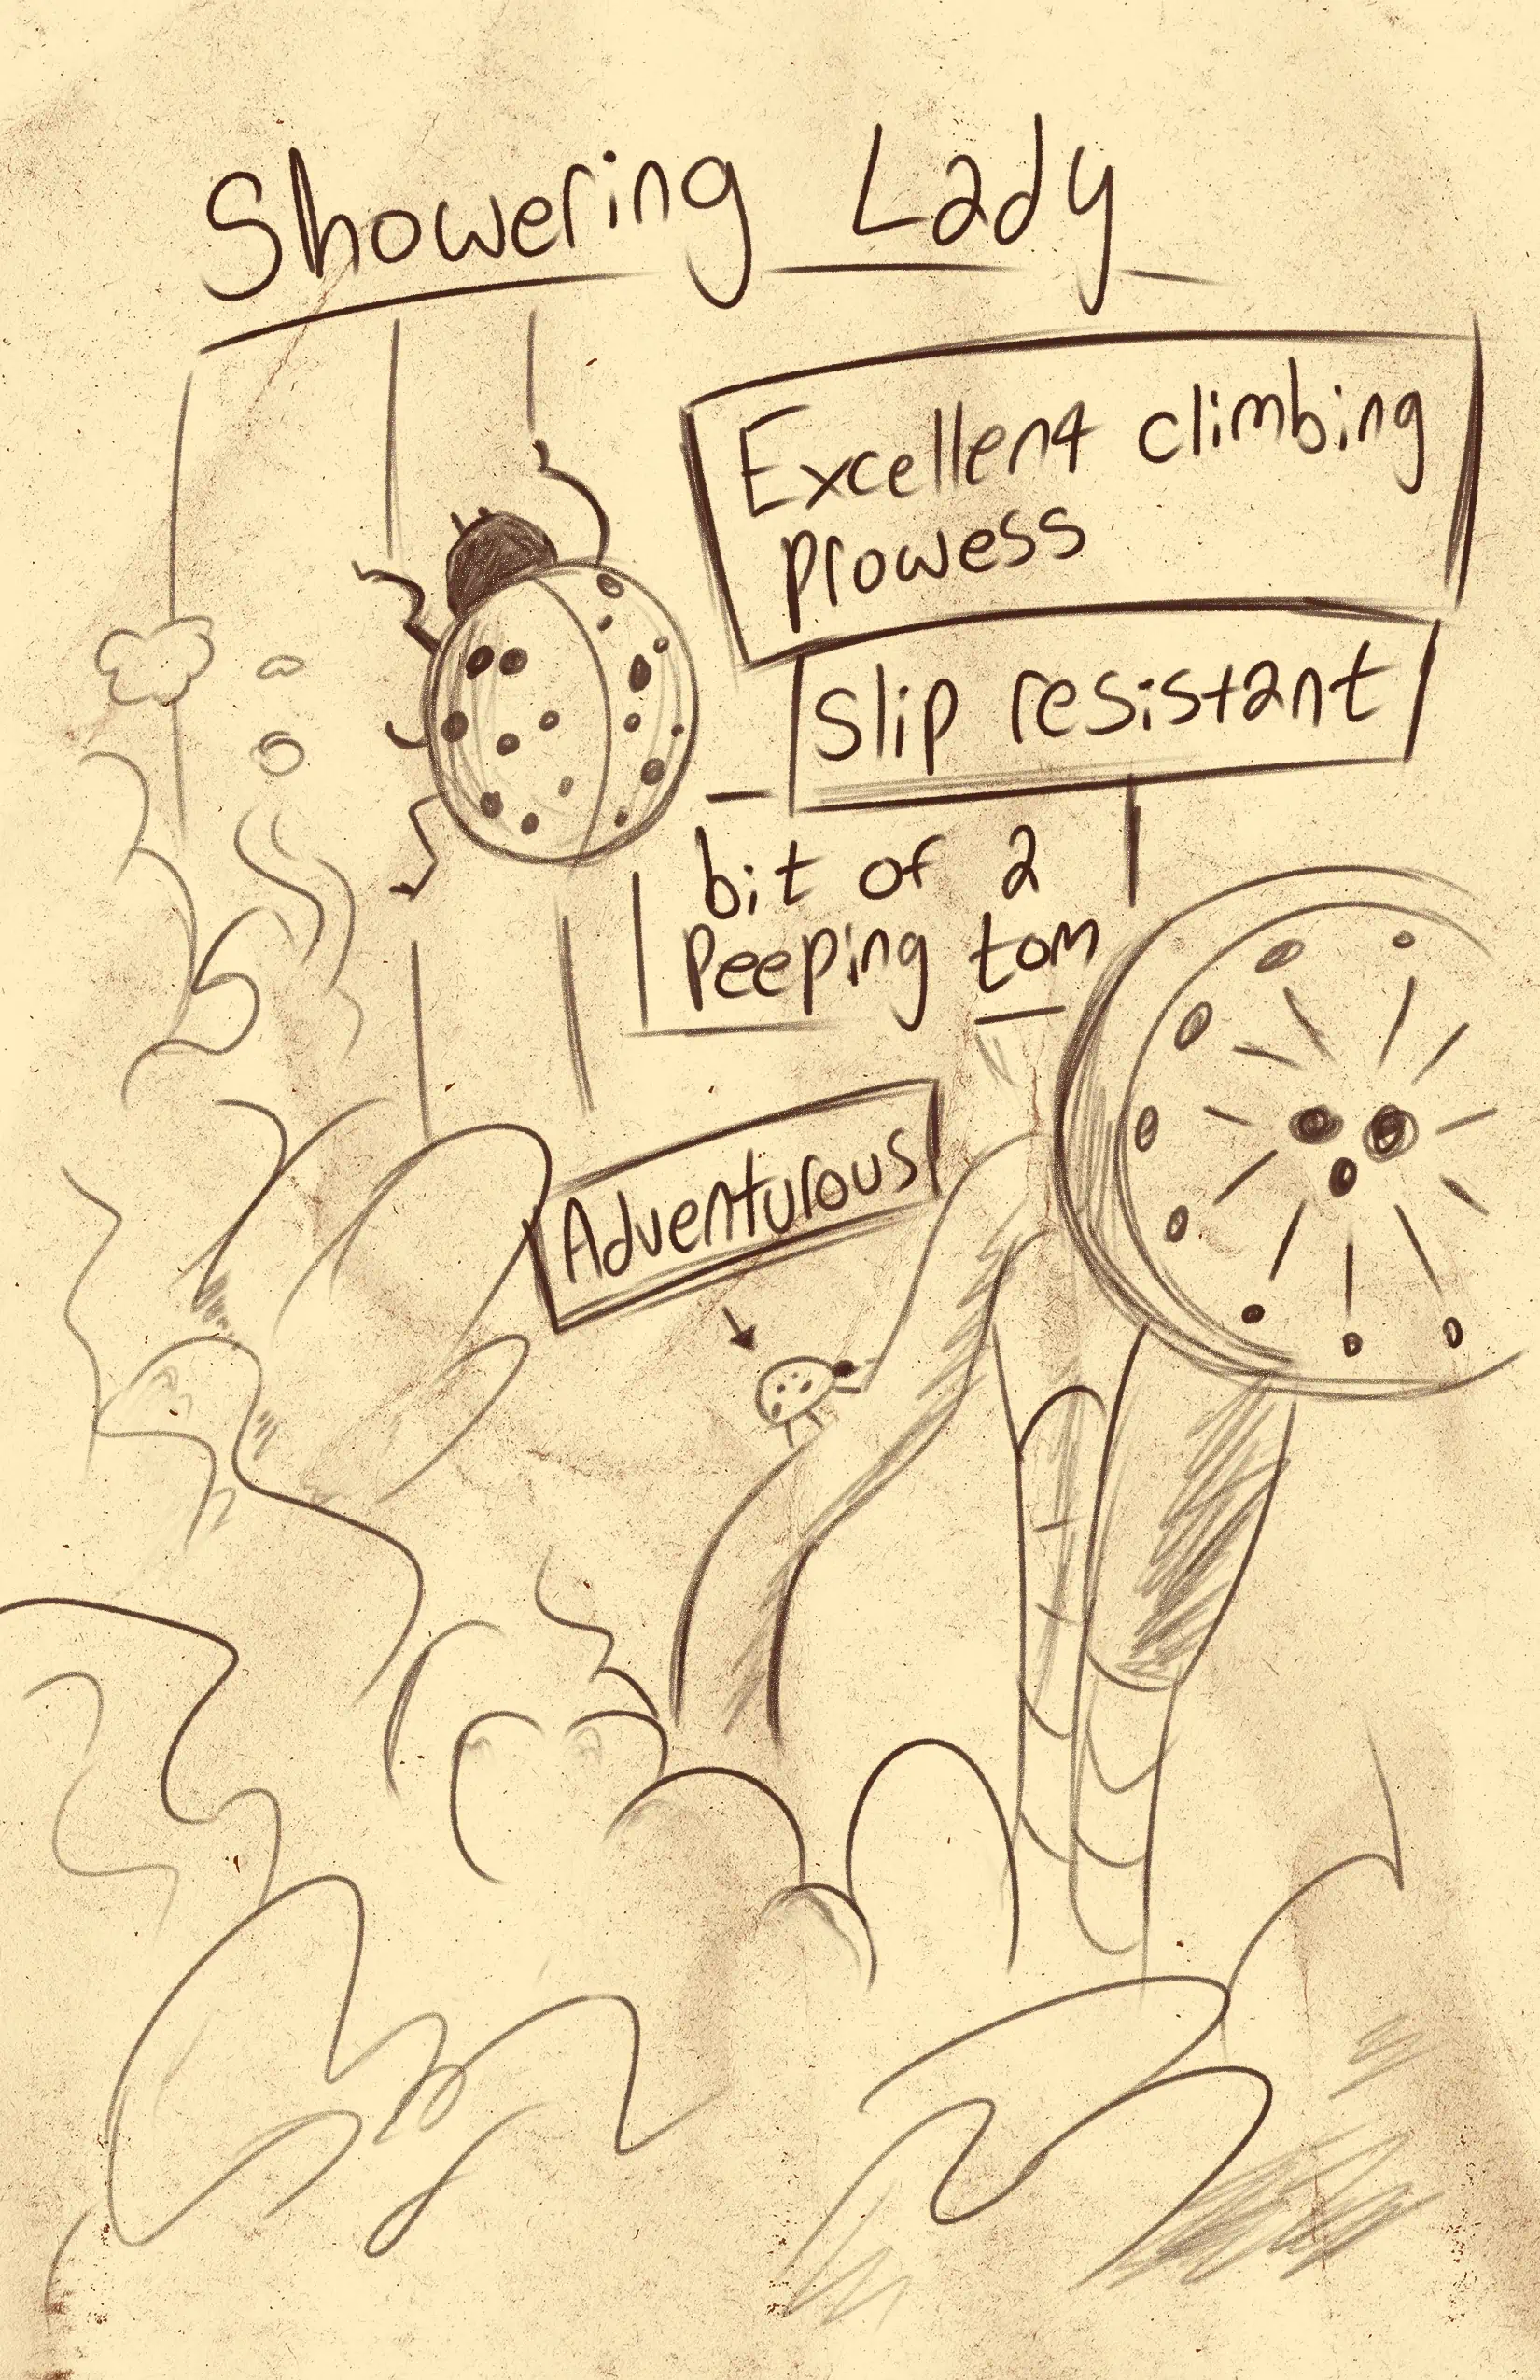 Showering Lady
Excellent climbing
prowess
Slip resistant
bit of a
Peeping tom
Adventurous